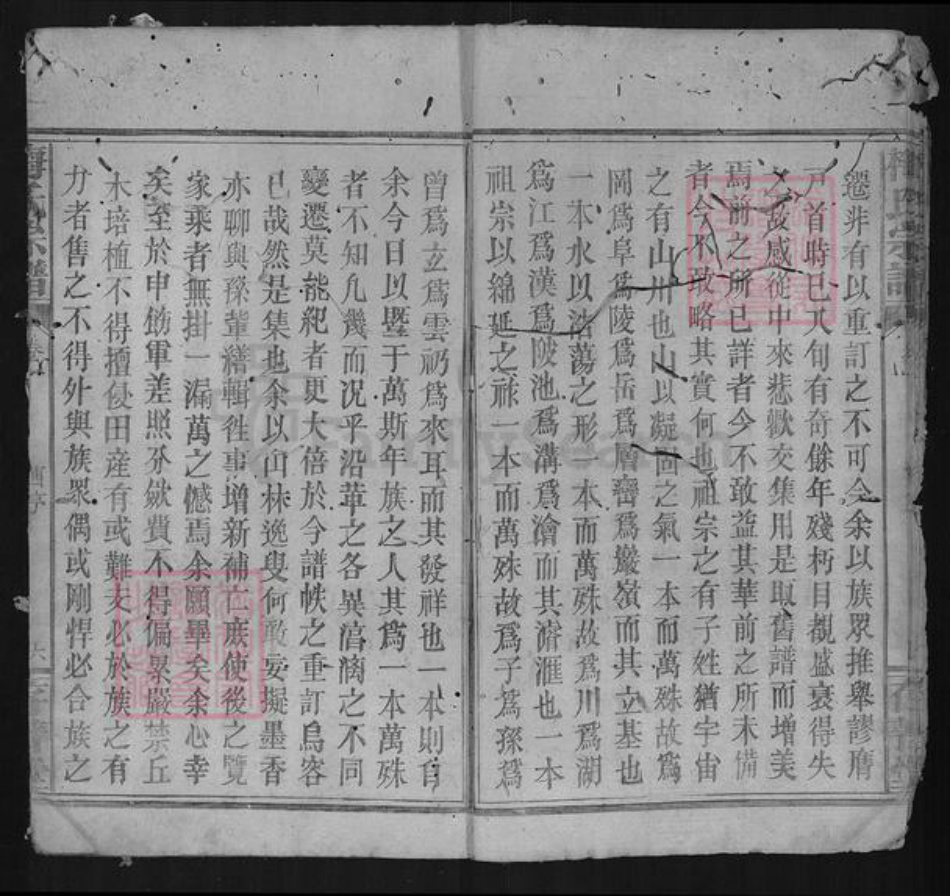 遷非有以重訂之不可余以族眾推舉謬膺
戶首時已八旬有奇餘年殘朽目覩盛衰得失
之故感從中來悲歡交集用是取舊譜而增美
焉前之所已詳者今不敢益其華前之所未備
者今不敢略其實何也祖宗之有子姓猶宇宙
之有山川也山以凝固之氣一本而萬殊故爲
岡爲阜爲陵爲岳爲層巒爲巖嶺而其立基也
一本水以浩蕩之形一本而萬殊故爲川爲湖
爲江爲漢爲陂池爲溝爲澮而其瀠滙也一本
祖宗以綿延之祚一本而萬殊故爲子爲孫爲
曾爲玄爲雲礽爲來耳而其發祥也一本則自
余今日以曁于萬斯年族之人其爲一本萬殊
者不知凡幾而况乎沿革之各異湻漓之不同
變遷莫能紀者更大倍於今譜帙之重訂烏容
已哉然是集也余以山林逸叟何敢妄擬墨香
亦聊與孫輩繕輯徃事增新補亡庶使後之覽
家乘者無掛一漏萬之憾焉余願畢矣余心幸
矣至於申飭軍差照分斂費不得偏累嚴禁丘
木培植不得擅侵田産有或難支必於族之有
力者售之不得外與族眾偶或剛悍必合族之
梅氏宗譜
卷首
六